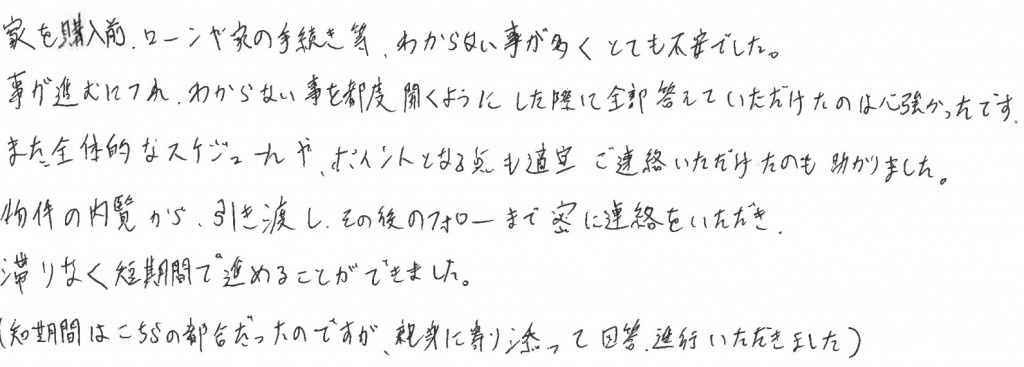 家を購入前、ローンや家の手続き等、わからない事が多くとても不安でした。
事が進むにつれ、わからない事を都度聞くようにした際に全部答えていただけたのは心強かったです。
また、全体的なスケジュールや、ポイントとなる点も適宜ご連絡いただけたのも助かりました。
物件の内覧から、引き渡し、その後のフォローまで密に連絡をいただき、
滞りなく短期間で進めることができました。
(短期間はこちらの都合だったのですが、親身に寄り添って回答、進行いただきました)